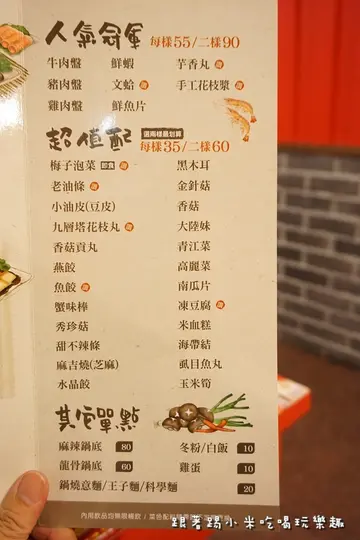 人氣冠軍 每樣55/二樣90
牛肉盤 鮮蝦 芋香丸
豬肉盤 文蛤 手工花枝漿
雞肉盤 鮮魚片
超值配 選兩樣最划算 每樣35/二樣60
梅子泡菜 黑木耳
老油條 金針菇
小油皮(豆皮) 香菇
九層塔花枝丸 大陸妹
香菇貢丸 青江菜
燕餃 高麗菜
魚餃 南瓜片
蟹味棒 凍豆腐
秀珍菇 米血糕
甜不辣條 海帶結
麻吉燒(芝麻) 虱目魚丸
水晶餃 玉米筍
其它單點
麻辣鍋底 80 冬粉/白飯 10
龍骨鍋底 60 雞蛋 10
鍋燒意麵/王子麵/科學麵 20
內用飲品均無限暢飲
跟著踢小米吃喝玩樂趣